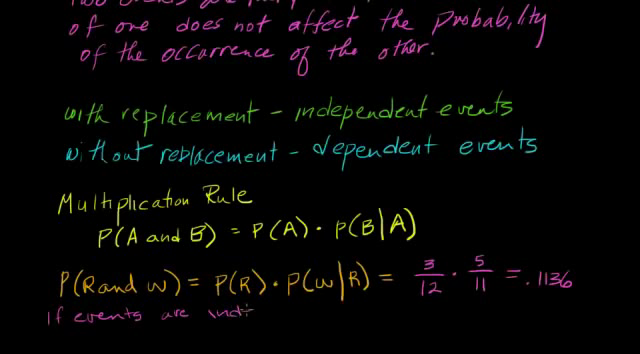 of one does not affect the probability
of the occurrence of the other.
with replacement - independent events
without reblacement - dependent events
Multiplication Rule
P(A and B) = P(A) · P(B|A)
P(R and W) = P(R) · P(W|R) = 3/12 · 5/11 = .1136
If events are ind